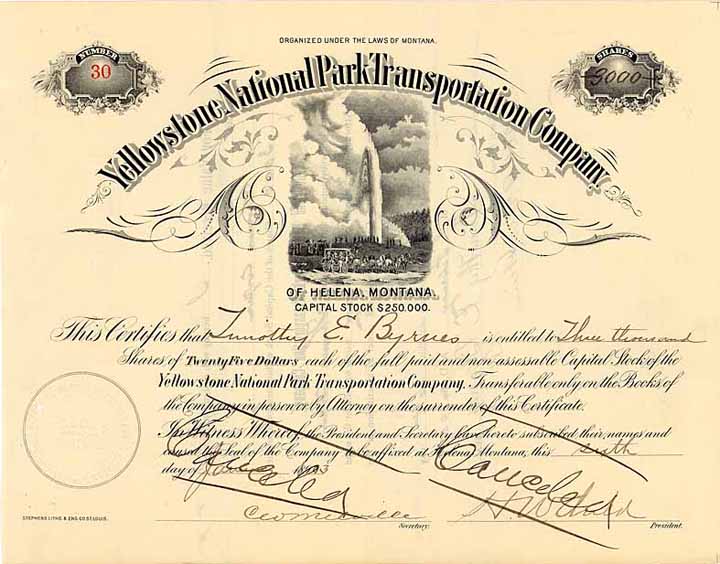 ORGANIZED UNDER THE LAWS OF MONTANA.
NUMBER
30
SHARES
3000
Yellowstone National Park Transportation Company,
OF HELENA, MONTANA.
CAPITAL STOCK $250.000.
This Certifies that Timothy E. Byrnes is entitled to Three thousand
Shares of Twenty Five Dollars each of the full paid and non-assessable Capital Stock of the
Yellowstone National Park Transportation Company, Transferable only on the Books of
the Company in person or by Attorney on the surrender of this Certificate.
In Witness Whereof, the President and Secretary have hereto subscribed their names and
caused the Seal of the Company to be affixed at Helena, Montana, this sixth
day of
Cancelled
Cancelled
Secretary.
H. W. Child
President.
STEPHENS LITHO. & ENG. CO. ST. LOUIS.